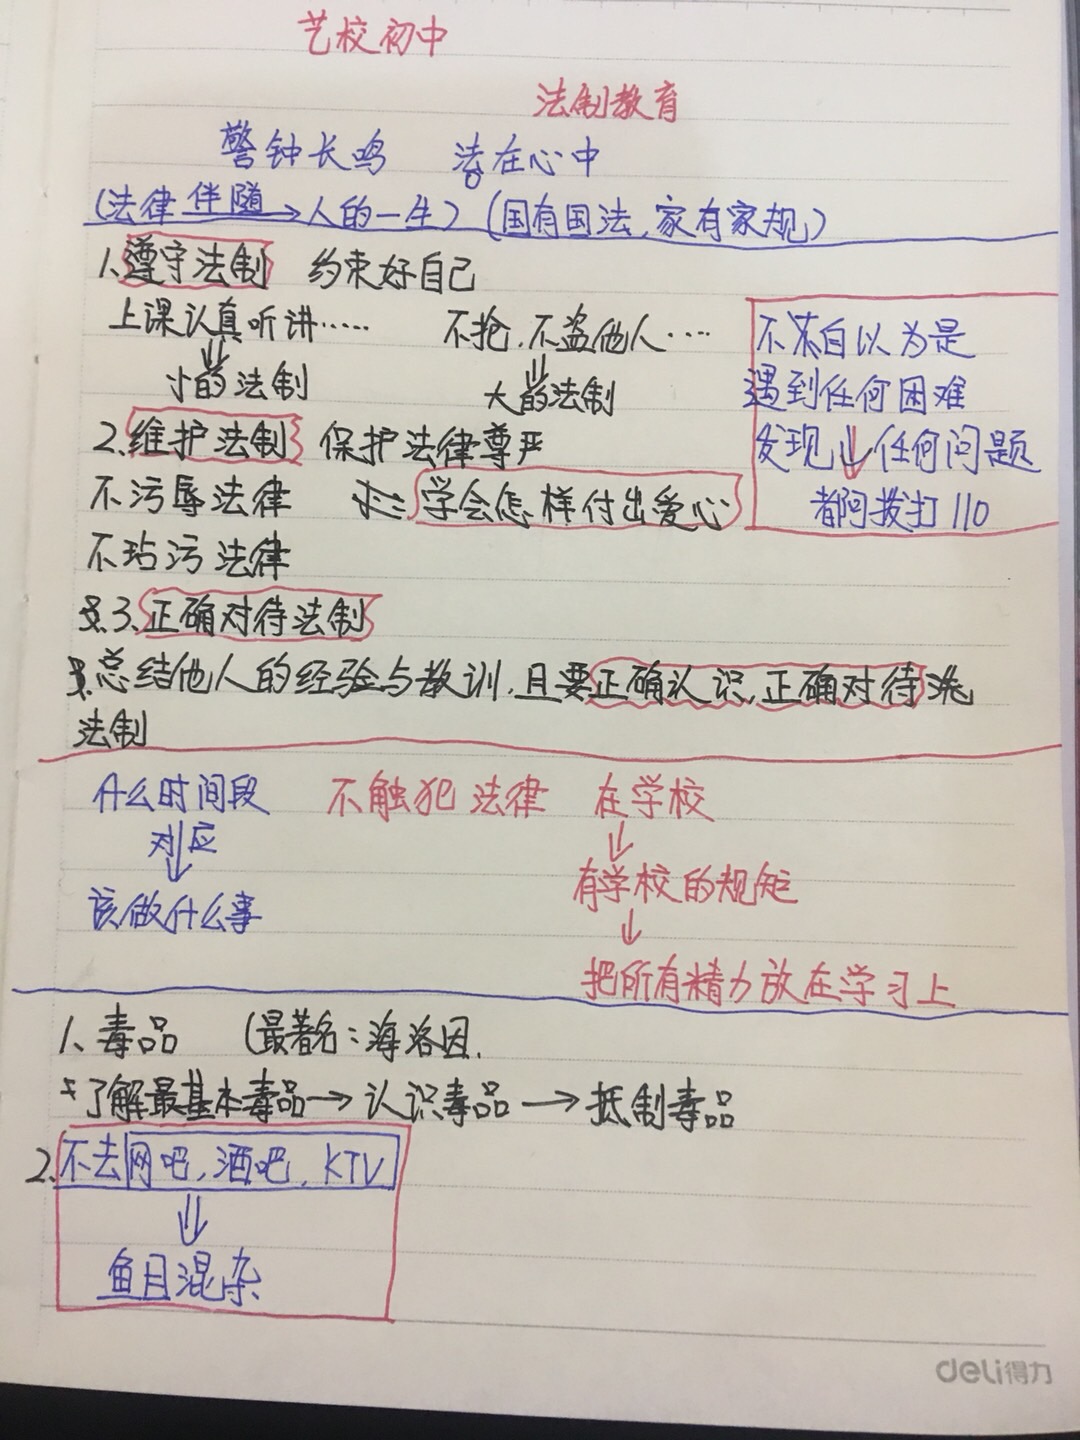 艺校初中
法制教育
警钟长鸣 法在心中
(法律伴随→人的一生) (国有国法,家有家规)
1.遵守法制 约束好自己
上课认真听讲…… 不抢,不盗他人……
小的法制 大的法制
不要自以为是
遇到任何困难
发现 任何问题
都可拨打110
2.维护法制 保护法律尊严
不污辱法律 学会怎样付出爱心
不玷污法律
3.正确对待法制
总结他人的经验与教训,且要正确认识,正确对待
法制
什么时间段 不触犯法律 在学校
对应
有学校的规矩
该做什么事
把所有精力放在学习上
1、毒品 (最著名:海洛因.
了解最基本毒品→认识毒品→抵制毒品
2.不去网吧,酒吧,KTV
鱼目混杂
deli得力